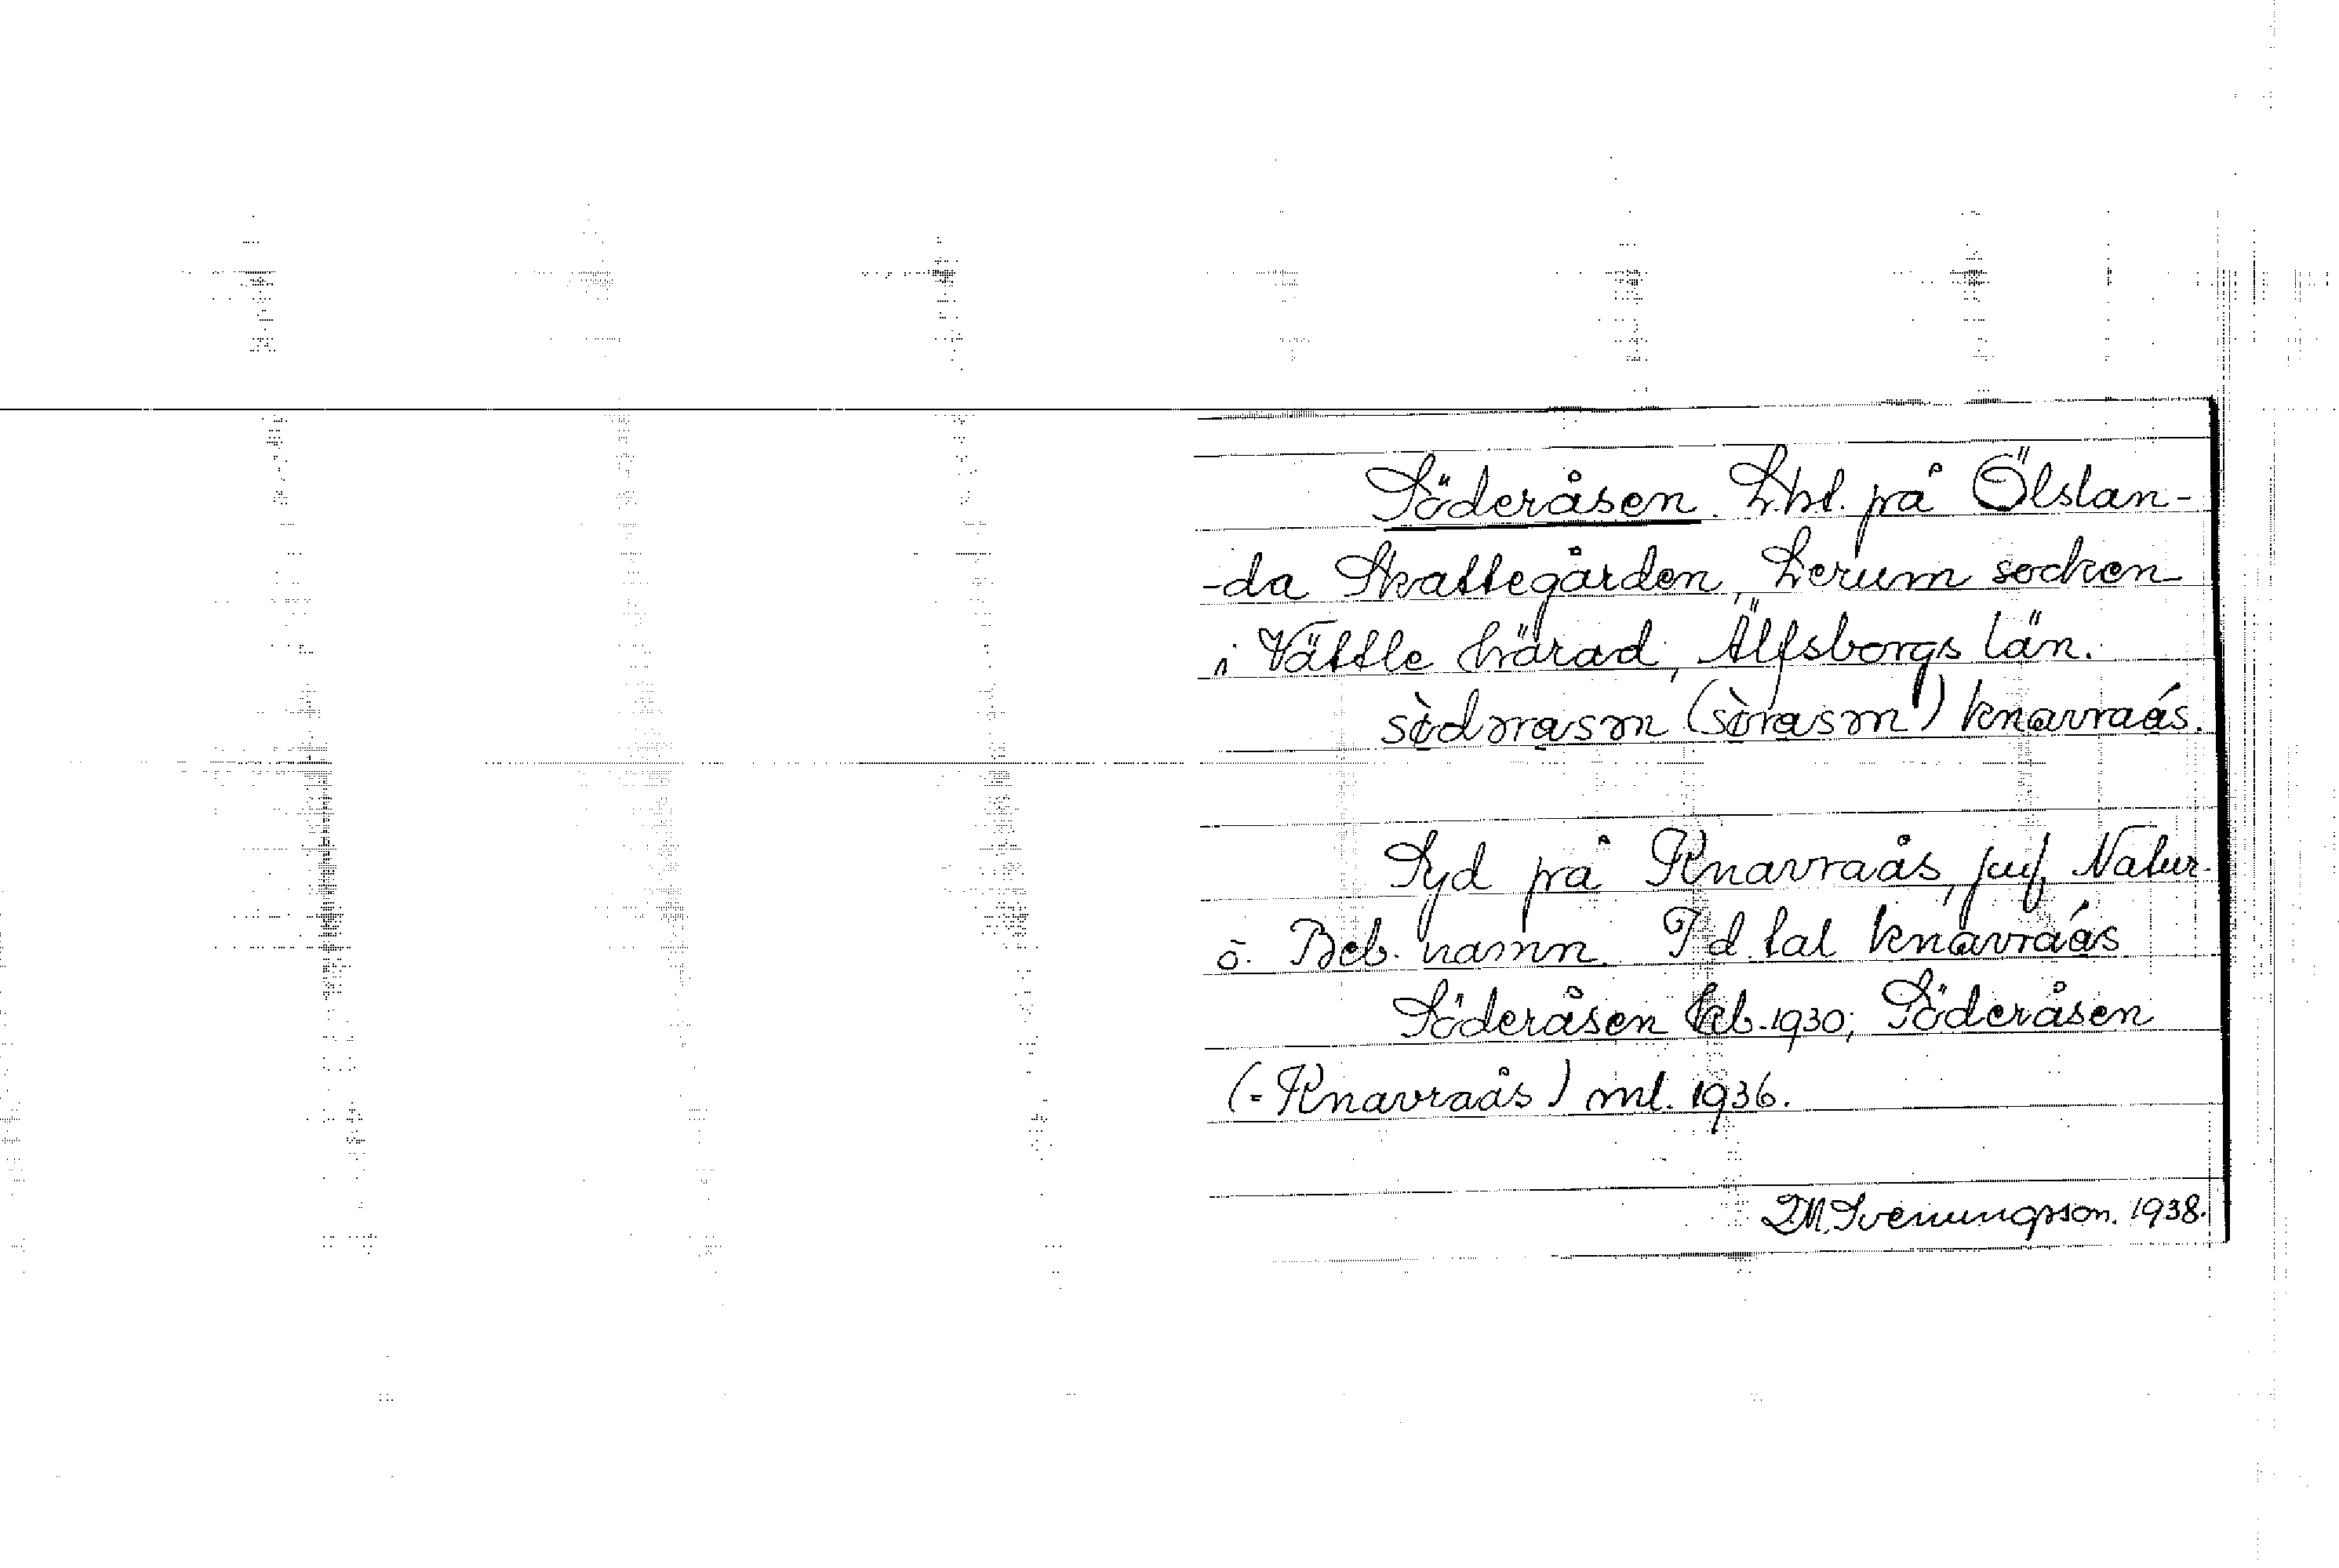 Söderåsen. Lht. på Ölslan-
-da Skattegården, Lerum socken
i Vättle härad, Älfsborgs län.
sòdərasən (sòrasən) knavraás.
Syd på Knavraås, juf. Natur-
o. Beb. namn. I d. tal knavraás
Söderåsen kb. 1930; Söderåsen
(= Knavraås) ml. 1936.
D.M. Svenungsson. 1938.